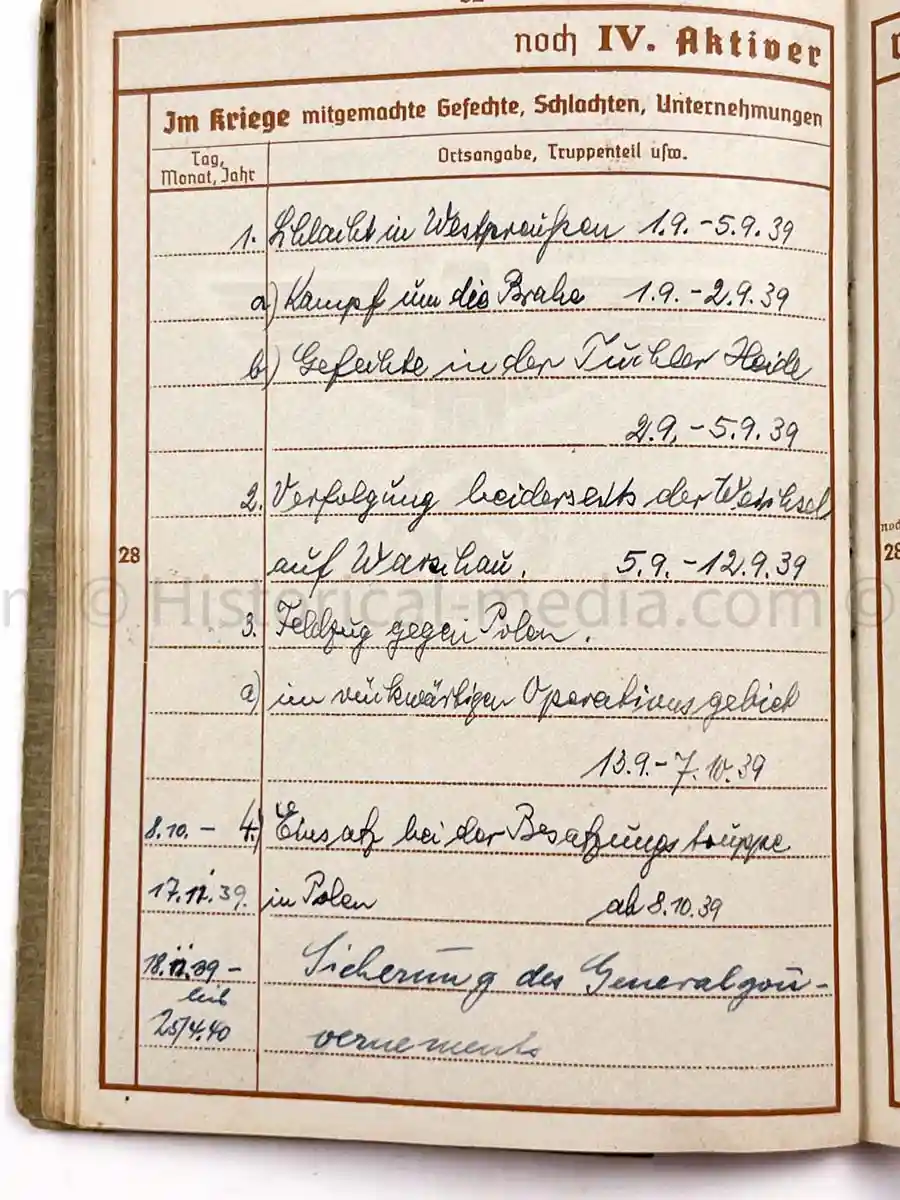 noch IV. Aktiver
Im Kriege mitgemachte Gefechte, Schlachten, Unternehmungen
Tag, Monat, Jahr
Ortsangabe, Truppenteil usw.
1. Schlacht in Westpreußen 1.9. - 5.9.39
a) Kampf um die Brahe 1.9. - 2.9.39
b) Gefechte in der Tuchler Heide
2.9. - 5.9.39
2. Verfolgung beiderseits der Weichsel
28
auf Warschau. 5.9. - 12.9.39
© Historical-media.com ©
3. Feldzug gegen Polen.
a) im rückwärtigen Operationsgebiet
13.9. - 7.10.39
8.10. - 4.) Einsatz bei der Besatzungstruppe
17.11.39. in Polen ab 8.10.39
18.11.39 - Sicherung des Generalgou-
bis
25/4.40 vernements
28